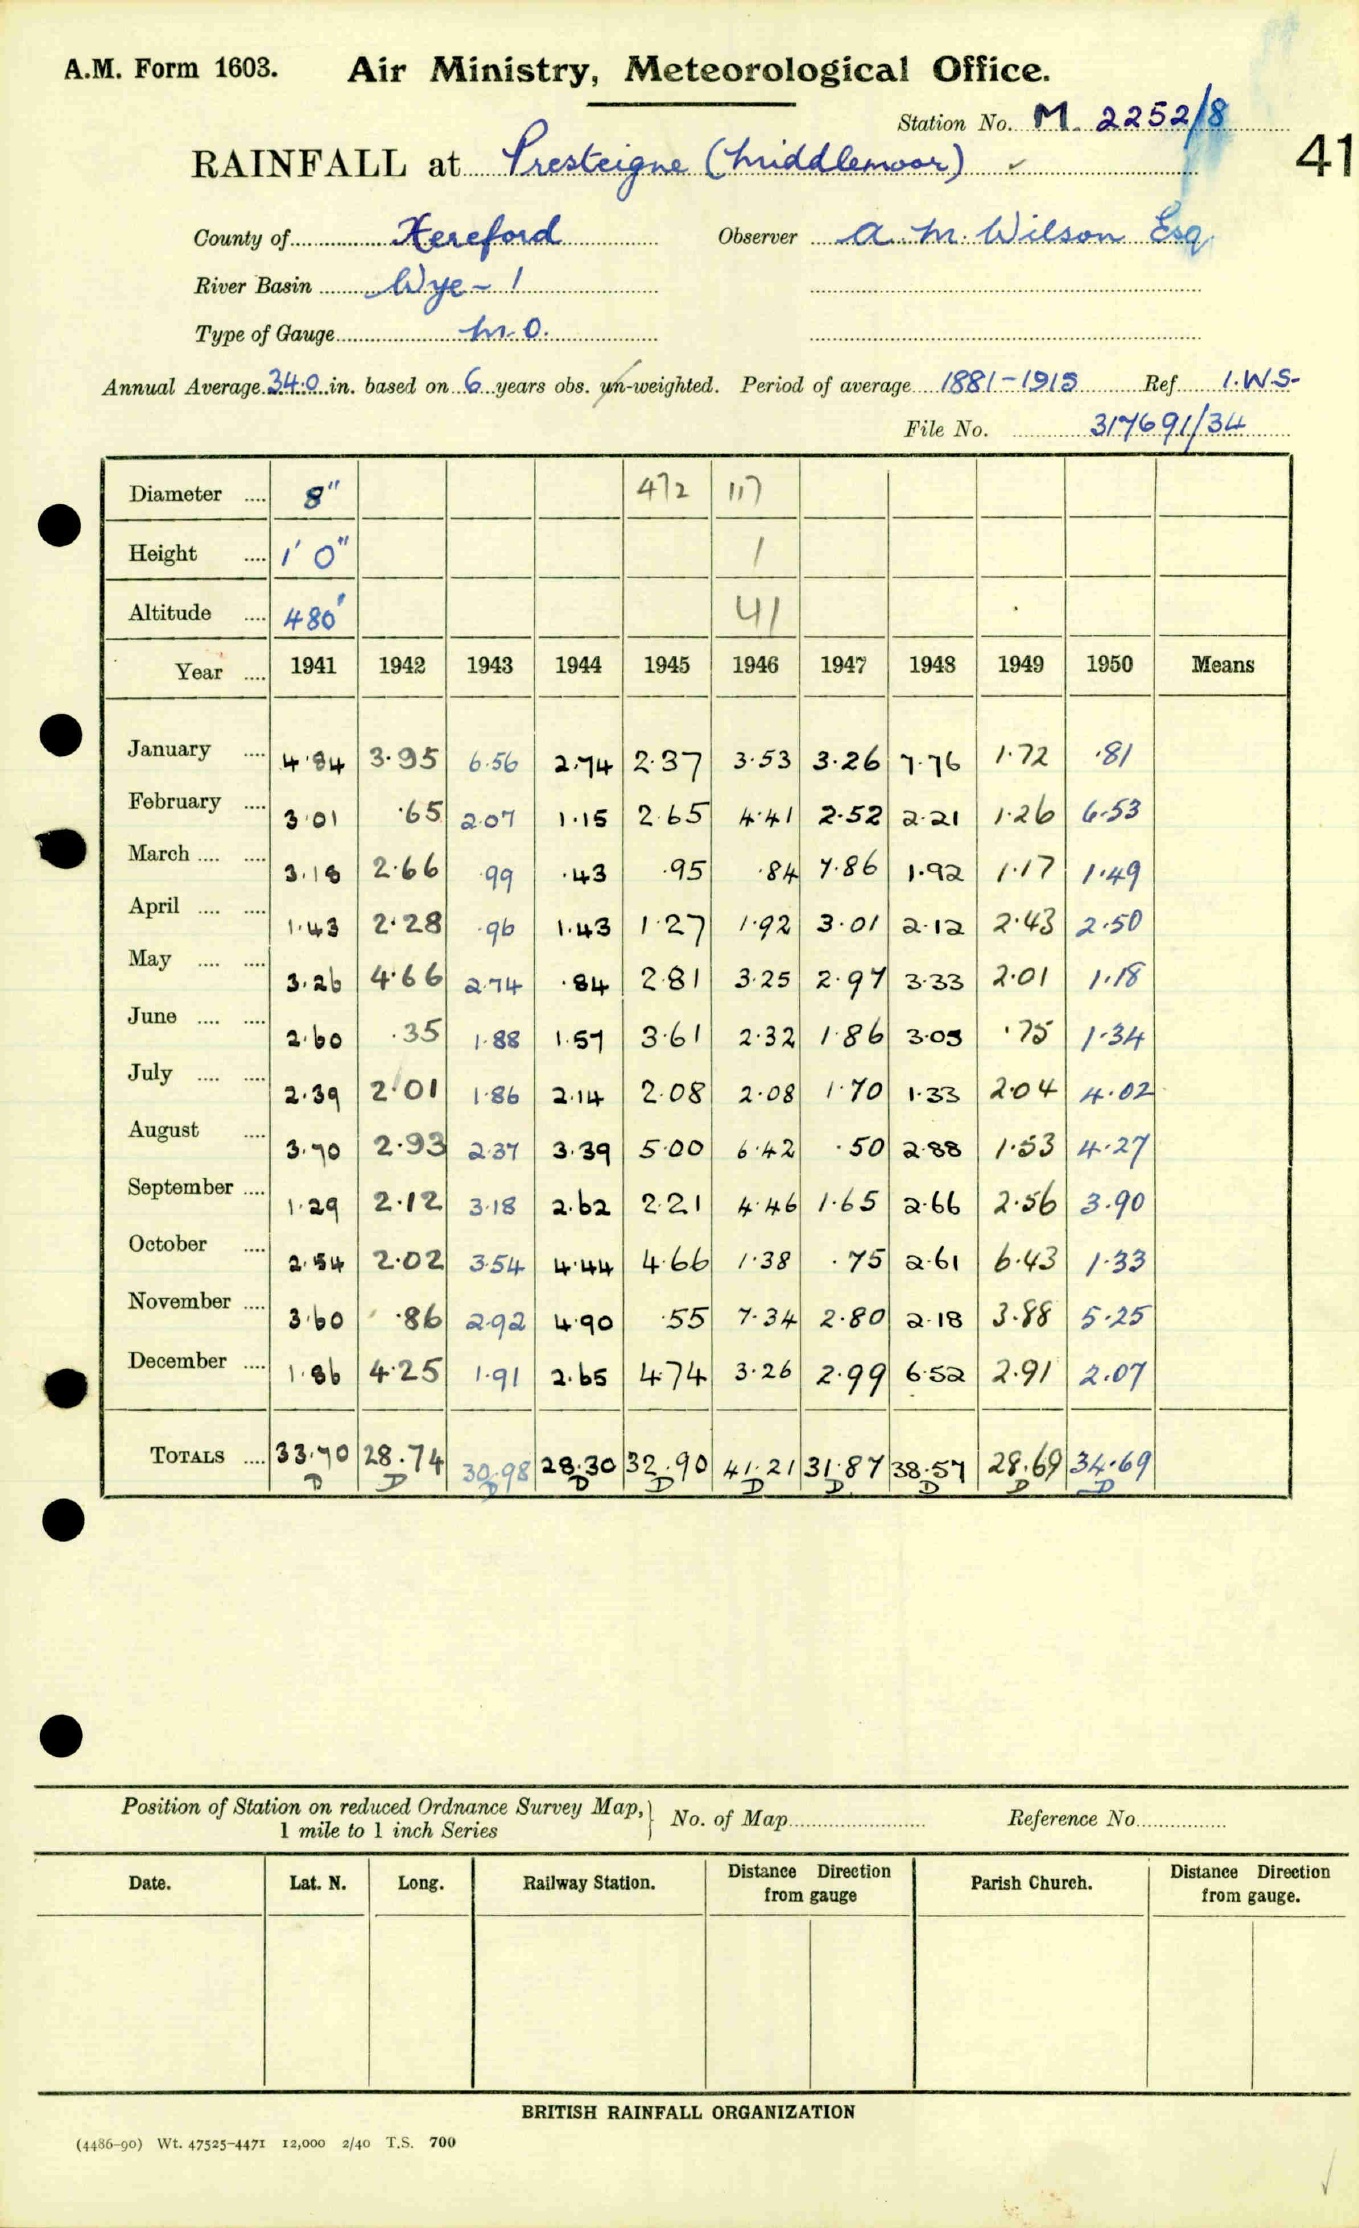 A.M. Form 1603. Air Ministry, Meteorological Office.
Station No. M. 2252/8
RAINFALL at Presteigne (Middlemoor) ✓ 41
County of Hereford Observer A. M. Wilson Esq.
River Basin Wye - 1
Type of Gauge M.O.
Annual Average 34.0 in. based on 6 years obs. un-weighted. Period of average 1881-1915 Ref 1.W.S.
File No. 317691/34
Diameter .... 8" 472 117
Height .... 1' 0" 1
Altitude .... 480' 41
Year .... 1941 1942 1943 1944 1945 1946 1947 1948 1949 1950 Means
January .... 4.84 3.95 6.56 2.74 2.37 3.53 3.26 7.76 1.72 .81
February .... 3.01 .65 2.07 1.15 2.65 4.41 2.52 2.21 1.26 6.53
March .... .... 3.18 2.66 .99 .43 .95 .84 7.86 1.92 1.17 1.49
April .... .... 1.43 2.28 .96 1.43 1.27 1.92 3.01 2.12 2.43 2.50
May .... .... 3.26 4.66 2.74 .84 2.81 3.25 2.97 3.33 2.01 1.18
June .... .... 2.60 .35 1.88 1.57 3.61 2.32 1.86 3.05 .75 1.34
July .... .... 2.39 2.01 1.86 2.14 2.08 2.08 1.70 1.33 2.04 4.02
August .... 3.70 2.93 2.37 3.39 5.00 6.42 .50 2.88 1.53 4.27
September .... 1.29 2.12 3.18 2.62 2.21 4.46 1.65 2.66 2.56 3.90
October .... 2.54 2.02 3.54 4.44 4.66 1.38 .75 2.61 6.43 1.33
November .... 3.60 .86 2.92 4.90 .55 7.34 2.80 2.18 3.88 5.25
December .... 1.86 4.25 1.91 2.65 4.74 3.26 2.99 6.52 2.91 2.07
TOTALS .... 33.70 28.74 30.98 28.30 32.90 41.21 31.87 38.57 28.69 34.69
D D D D D D D D D D
Position of Station on reduced Ordnance Survey Map, 1 mile to 1 inch Series } No. of Map Reference No.
Date. Lat. N. Long. Railway Station. Distance Direction from gauge Parish Church. Distance Direction from gauge.
BRITISH RAINFALL ORGANIZATION
(4486-90) Wt. 47525-4471 12,000 2/40 T.S. 700